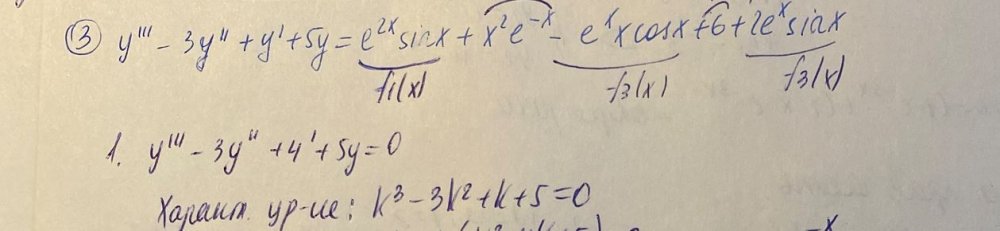 ③ y''' - 3y'' + y' + 5y = e^{2x} sin x + x^2 e^{-x} - e^x x cos x + 6 + 2e^x sin x
f1(x) f3(x) f3(x)
1. y''' - 3y'' + 4' + 5y = 0
Характ. ур-ие: k^3 - 3k^2 + k + 5 = 0